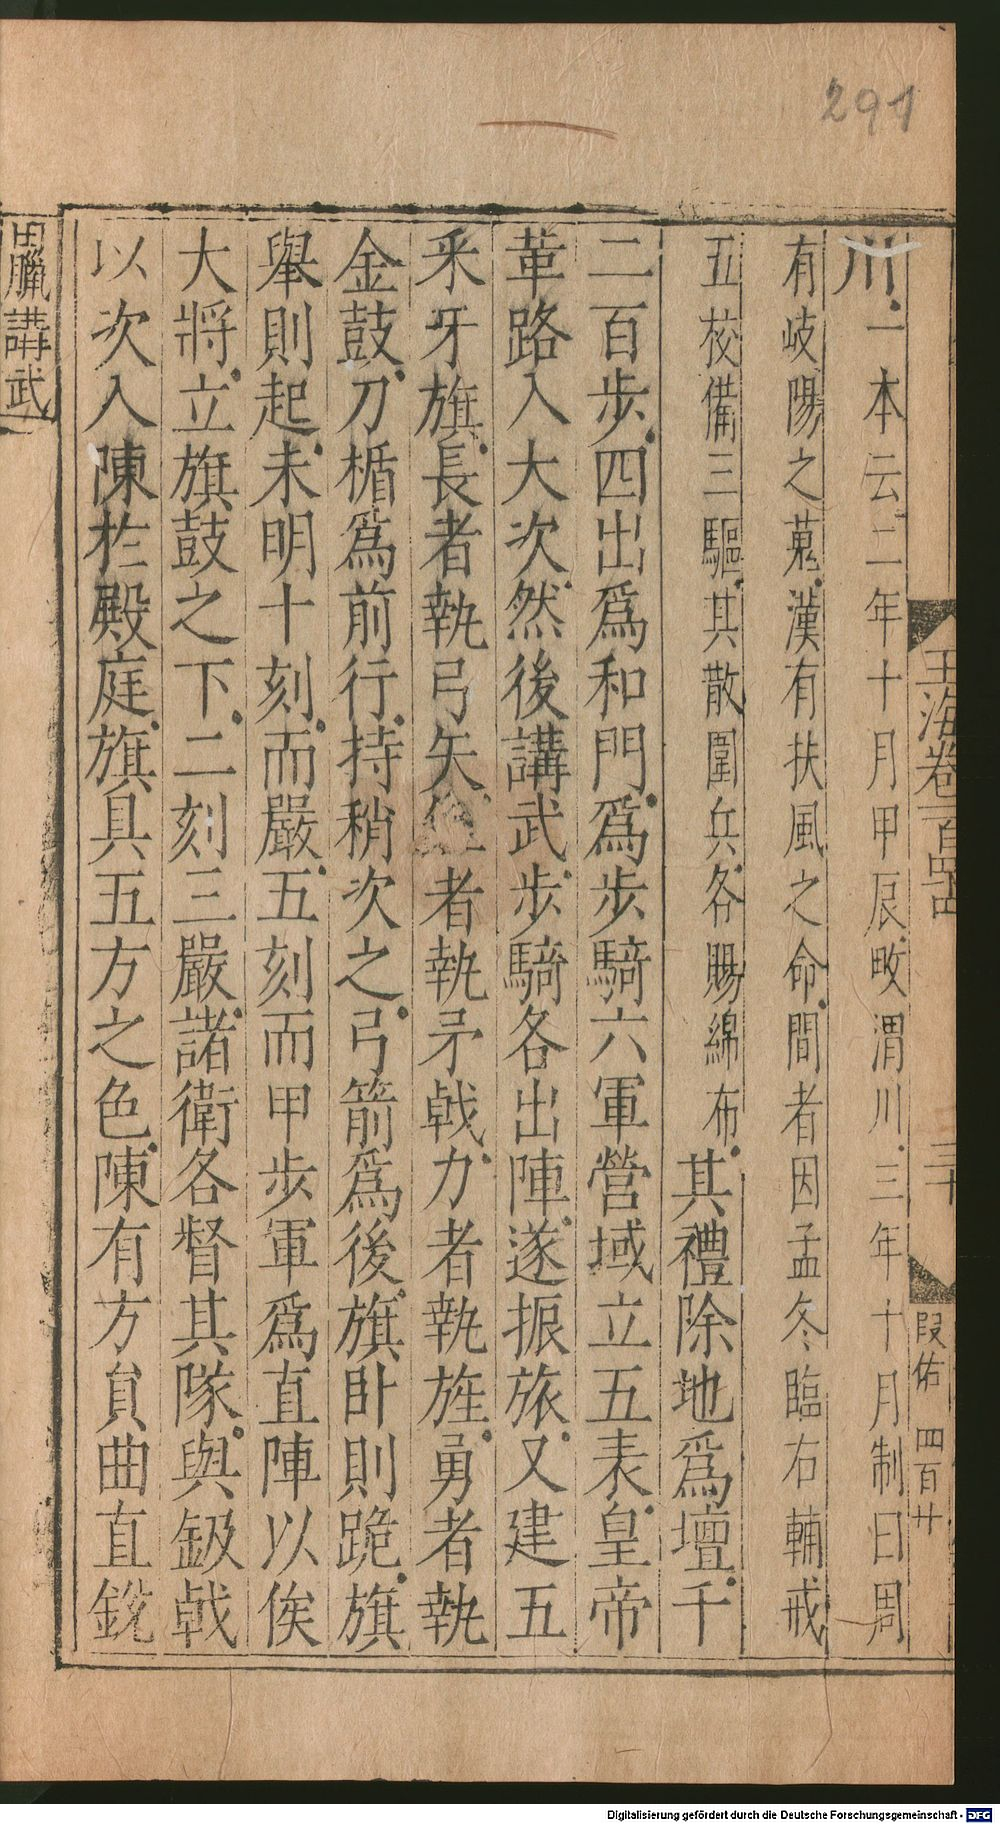 291
玉海卷一百四十四
三十
段佑 四百廿
川一本云二年十月甲辰畋渭川三年十月制曰周
有岐陽之蒐漢有扶風之命間者因孟冬臨右輔戒
五校備三驅其散圍兵各賜綿布其禮除地爲壇千
二百步四出爲和門爲步騎六軍營域立五表皇帝
革路入大次然後講武步騎各出陣遂振旅又建五
釆牙旗長者執弓矢短者執矛戟力者執旌勇者執
金鼓刀楯爲前行持矟次之弓箭爲後旗卧則跪旗
舉則起未明十刻而嚴五刻而甲步軍爲直陣以俟
大將立旗鼓之下二刻三嚴諸衛各督其隊與鈒戟
以次入陳於殿庭旗具五方之色陳有方負曲直銳
田臘講武
Digitalisierung gefördert durch die Deutsche Forschungsgemeinschaft - DFG